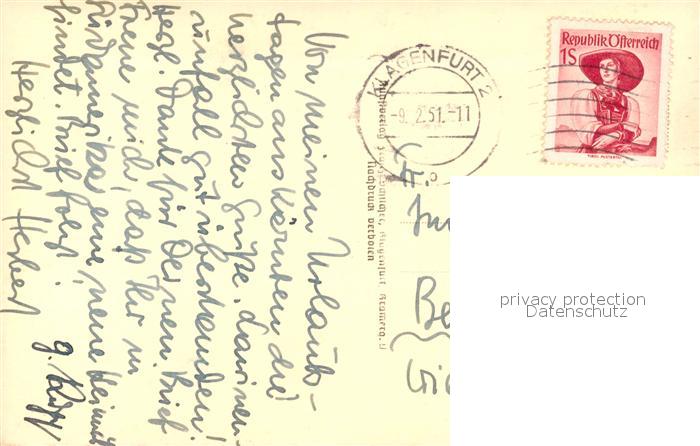 Von meinen Urlaubs-
tagen aus Kärnten die
herzlichsten Grüße. Lawinen-
unfall gut überstanden!
Herzl. Dank für Deinen Brief
freue mich daß Ihr in
Südamerika eine neue Heimat
findet. Brief folgt!
Herzlichst Herbert
KLAGENFURT 2
-9. 2. 51.-11
Republik Österreich
1S
Fr.
Nachdruck verboten
Be
privacy protection
Datenschutz